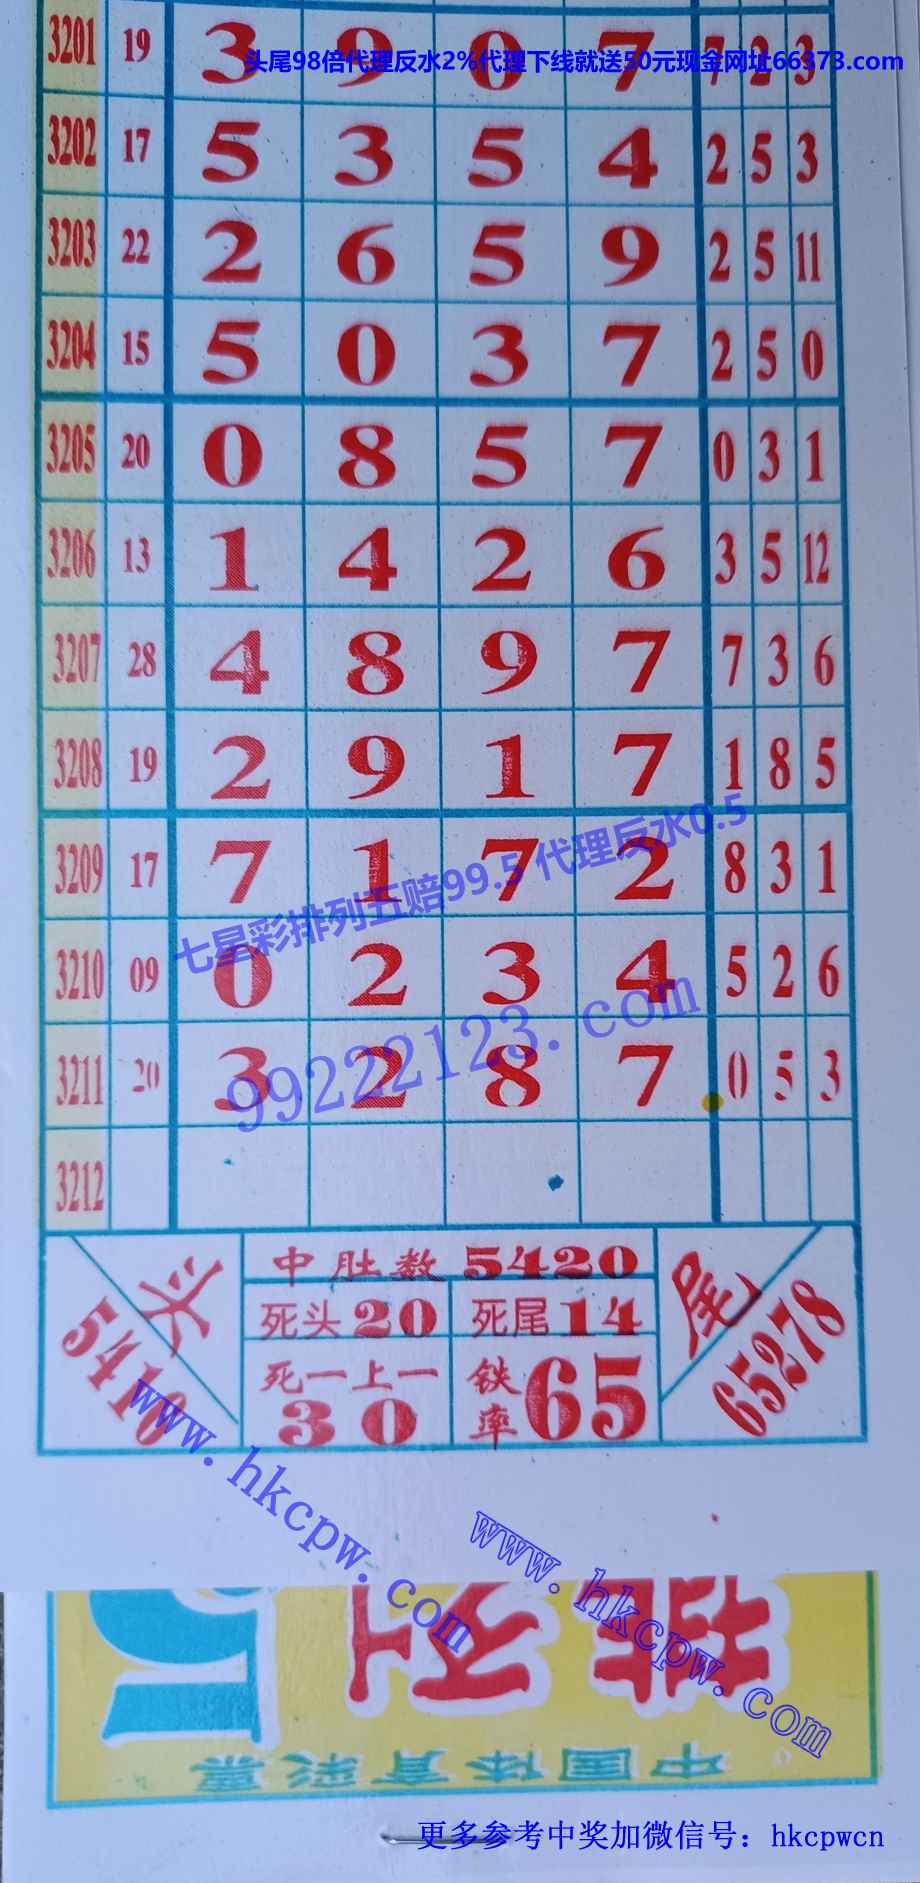 头尾98倍代理反水2%代理下线就送50元现金网址66373.com
3201 19 3 9 0 7 7 2 3
3202 17 5 3 5 4 2 5 3
3203 22 2 6 5 9 2 5 11
3204 15 5 0 3 7 2 5 0
3205 20 0 8 5 7 0 3 1
3206 13 1 4 2 6 3 5 12
3207 28 4 8 9 7 7 3 6
3208 19 2 9 1 7 1 8 5
七星彩排列五赔99.5 代理反水0.5
3209 17 7 1 7 2 8 3 1
3210 09 0 2 3 4 5 2 6
99222123.com
3211 20 3 2 8 7 0 5 3
3212
头 5410
中肚数 5420
死头20 死尾14
死一上一 30
铁率65
尾 65278
www.hkcpw.com
www.hkcpw.com
排列5
中国体育彩票
更多参考中奖加微信号：hkcpwcn